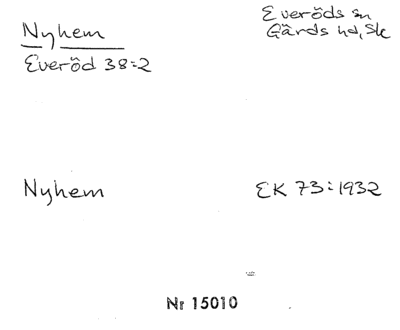 Nyhem
Everöds sn
Gärds hd, Sk
Everöd 38:2
Nyhem
EK 73:1932
Nr 15010